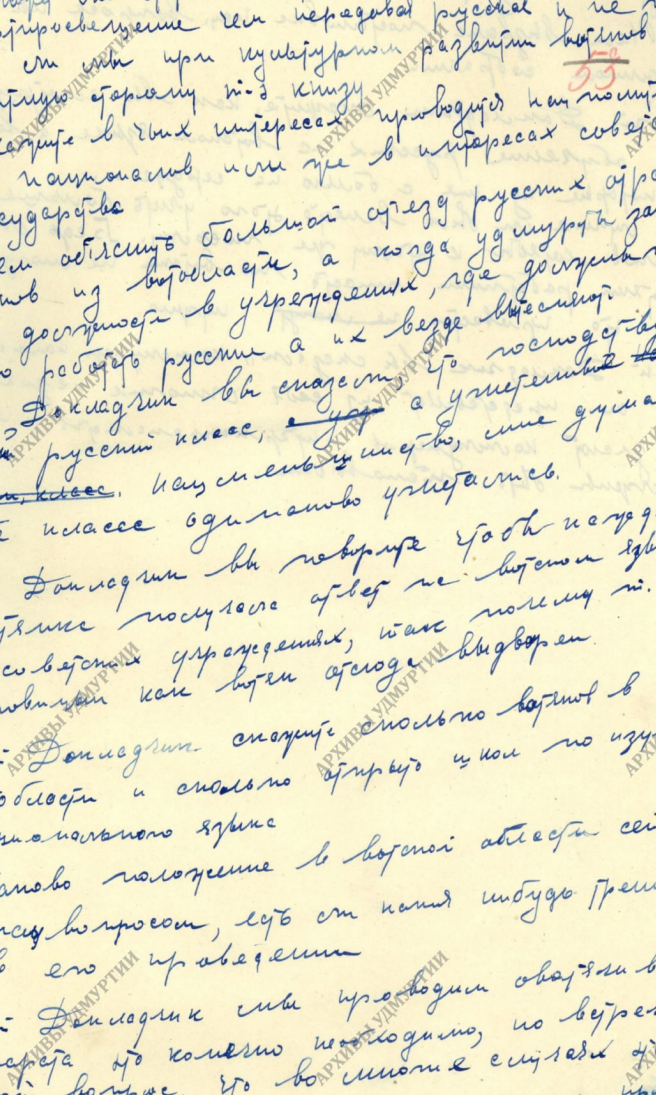 просвещение чем передовая русская и не
ли мы при культурном развитии вотяков
тную сторону т-з книзу
55
скажите в чьих интересах проводится нац политика
националов или же в интересах советс
сударства
ем объяснить большой отъезд русских
нов из вотобласти, а когда удмурты за
должности в учреждениях, где должны
о работать русские а их везде вытесняют.
Докладчик вы сказали, что господств
русский класс, а угнетенные
и, класс. нацменьшинство, мне дума
классе одинаково угнетались.
Докладчик вы говорите чтобы кажд
тянка получала ответ на вотском язы
советских учреждениях, так почему т.
новичам как вотяк отсюда выдворен
Докладчик скажите сколько вотяков в
области и сколько открыто школ по изу
ционального языка
аково положение в вотской области сей
нац вопросом, есть ли какия нибудь трен
в его проведении
Докладчик мы проводим овотяки в
это конечно необходимо, но встре
вопрос, что во многие случаях
АРХИВЫ УДМУРТИИ
АРХИВЫ УДМУРТИИ
АРХИВЫ УДМУРТИИ
АРХИВЫ УДМУРТИИ
АРХИВЫ УДМУРТИИ
АРХИВЫ УДМУРТИИ
АРХИВЫ УДМУРТИИ
АРХИВЫ УДМУРТИИ